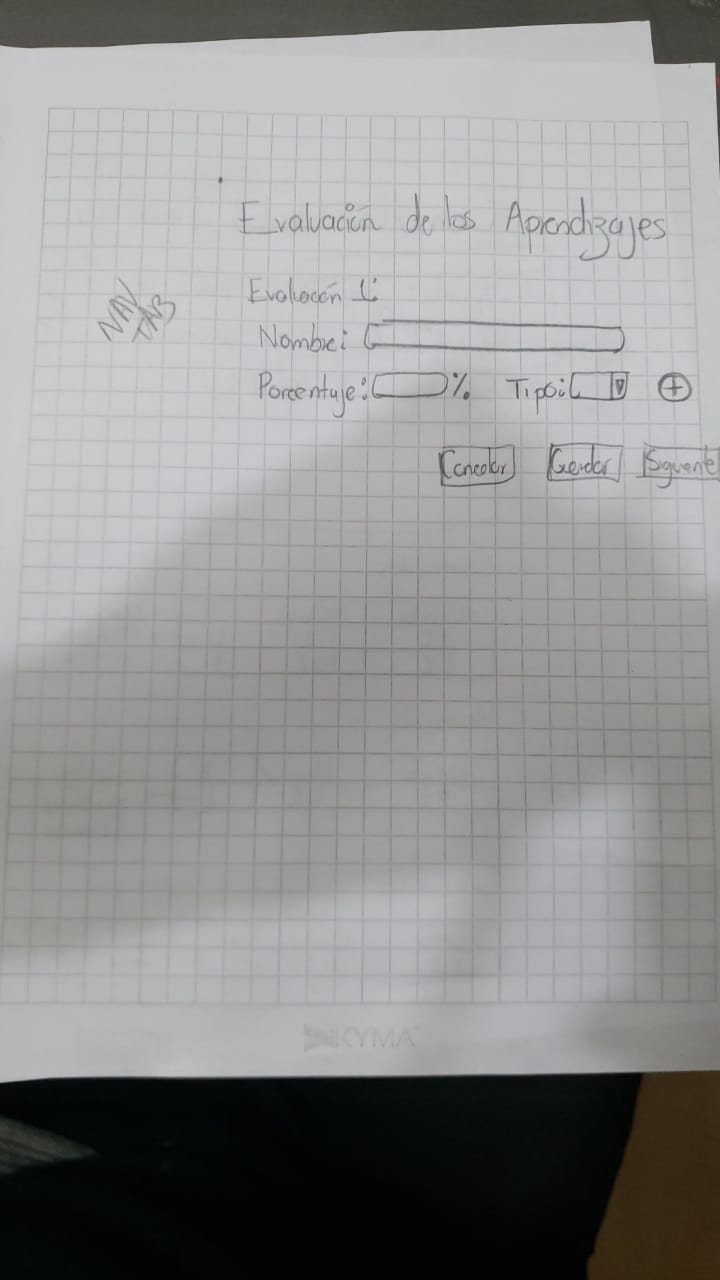 Evaluación de los Aprendizajes
NAV
TAB
Evaluación 1:
Nombre:
Porcentaje: % Tipo:
Cancelar Guardar Siguiente
KYMA